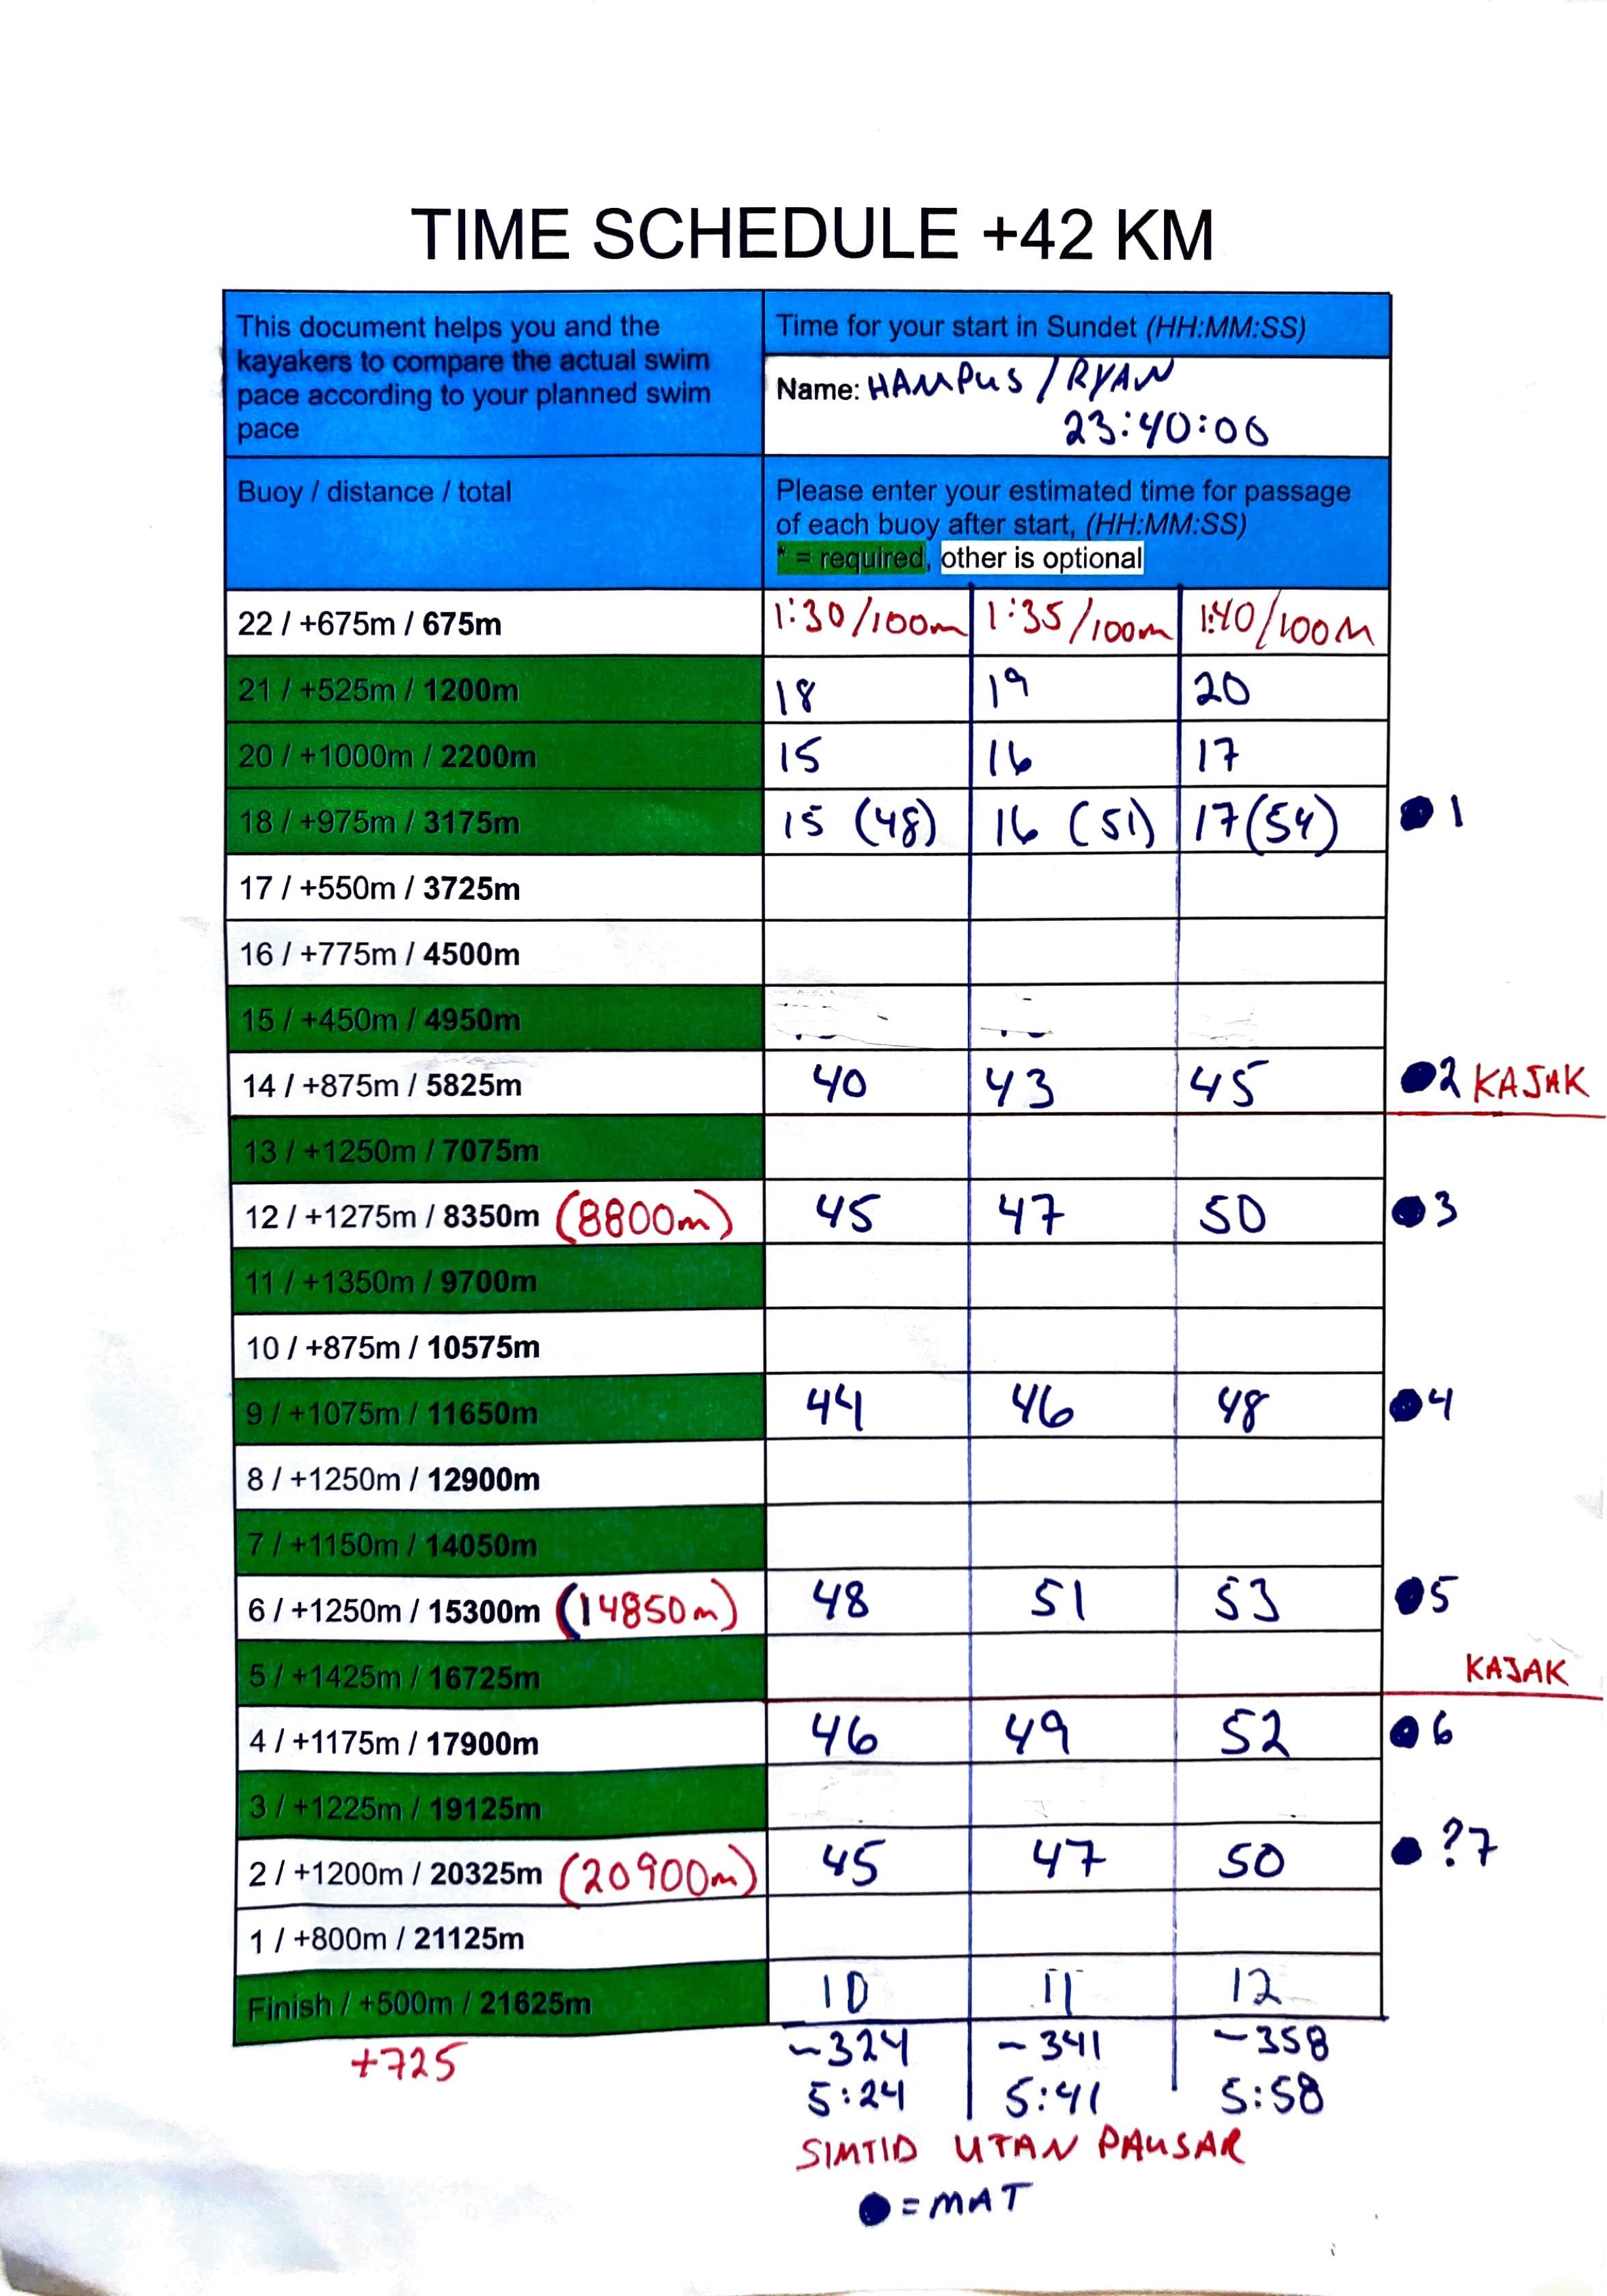 TIME SCHEDULE +42 KM
This document helps you and the
kayakers to compare the actual swim
pace according to your planned swim
pace
Time for your start in Sundet (HH:MM:SS)
Name: HAMPUS / RYAN
23:40:00
Buoy / distance / total
Please enter your estimated time for passage
of each buoy after start, (HH:MM:SS)
* = required, other is optional
22 / +675m / 675m 1:30/100m 1:35/100m 1:40/100M
21 / +525m / 1200m 18 19 20
20 / +1000m / 2200m 15 16 17
18 / +975m / 3175m 15 (48) 16 (51) 17(54) ●1
17 / +550m / 3725m
16 / +775m / 4500m
15 / +450m / 4950m
14 / +875m / 5825m 40 43 45 ●2 KAJAK
13 / +1250m / 7075m
12 / +1275m / 8350m (8800m) 45 47 50 ●3
11 / +1350m / 9700m
10 / +875m / 10575m
9 / +1075m / 11650m 44 46 48 ●4
8 / +1250m / 12900m
7 / +1150m / 14050m
6 / +1250m / 15300m (14850m) 48 51 53 ●5
5 / +1425m / 16725m KAJAK
4 / +1175m / 17900m 46 49 52 ●6
3 / +1225m / 19125m
2 / +1200m / 20325m (20900m) 45 47 50 ●?7
1 / +800m / 21125m
Finish / +500m / 21625m 10 11 12
+725 ~324 ~341 ~358
5:24 5:41 5:58
SIMTID UTAN PAUSAR
● = MAT